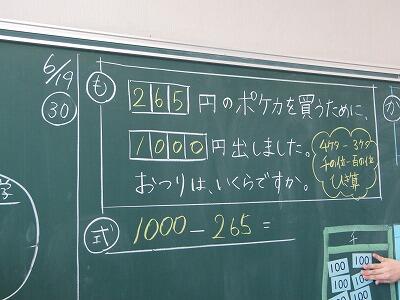 6/19
30
も
265円のポケカを買うために、
1000円出しました。
おつりは、いくらですか。
4ケタ-3ケタ
千の位-百の位
ひき算
式
1000-265=
か
学
千
100
100
100
100
100